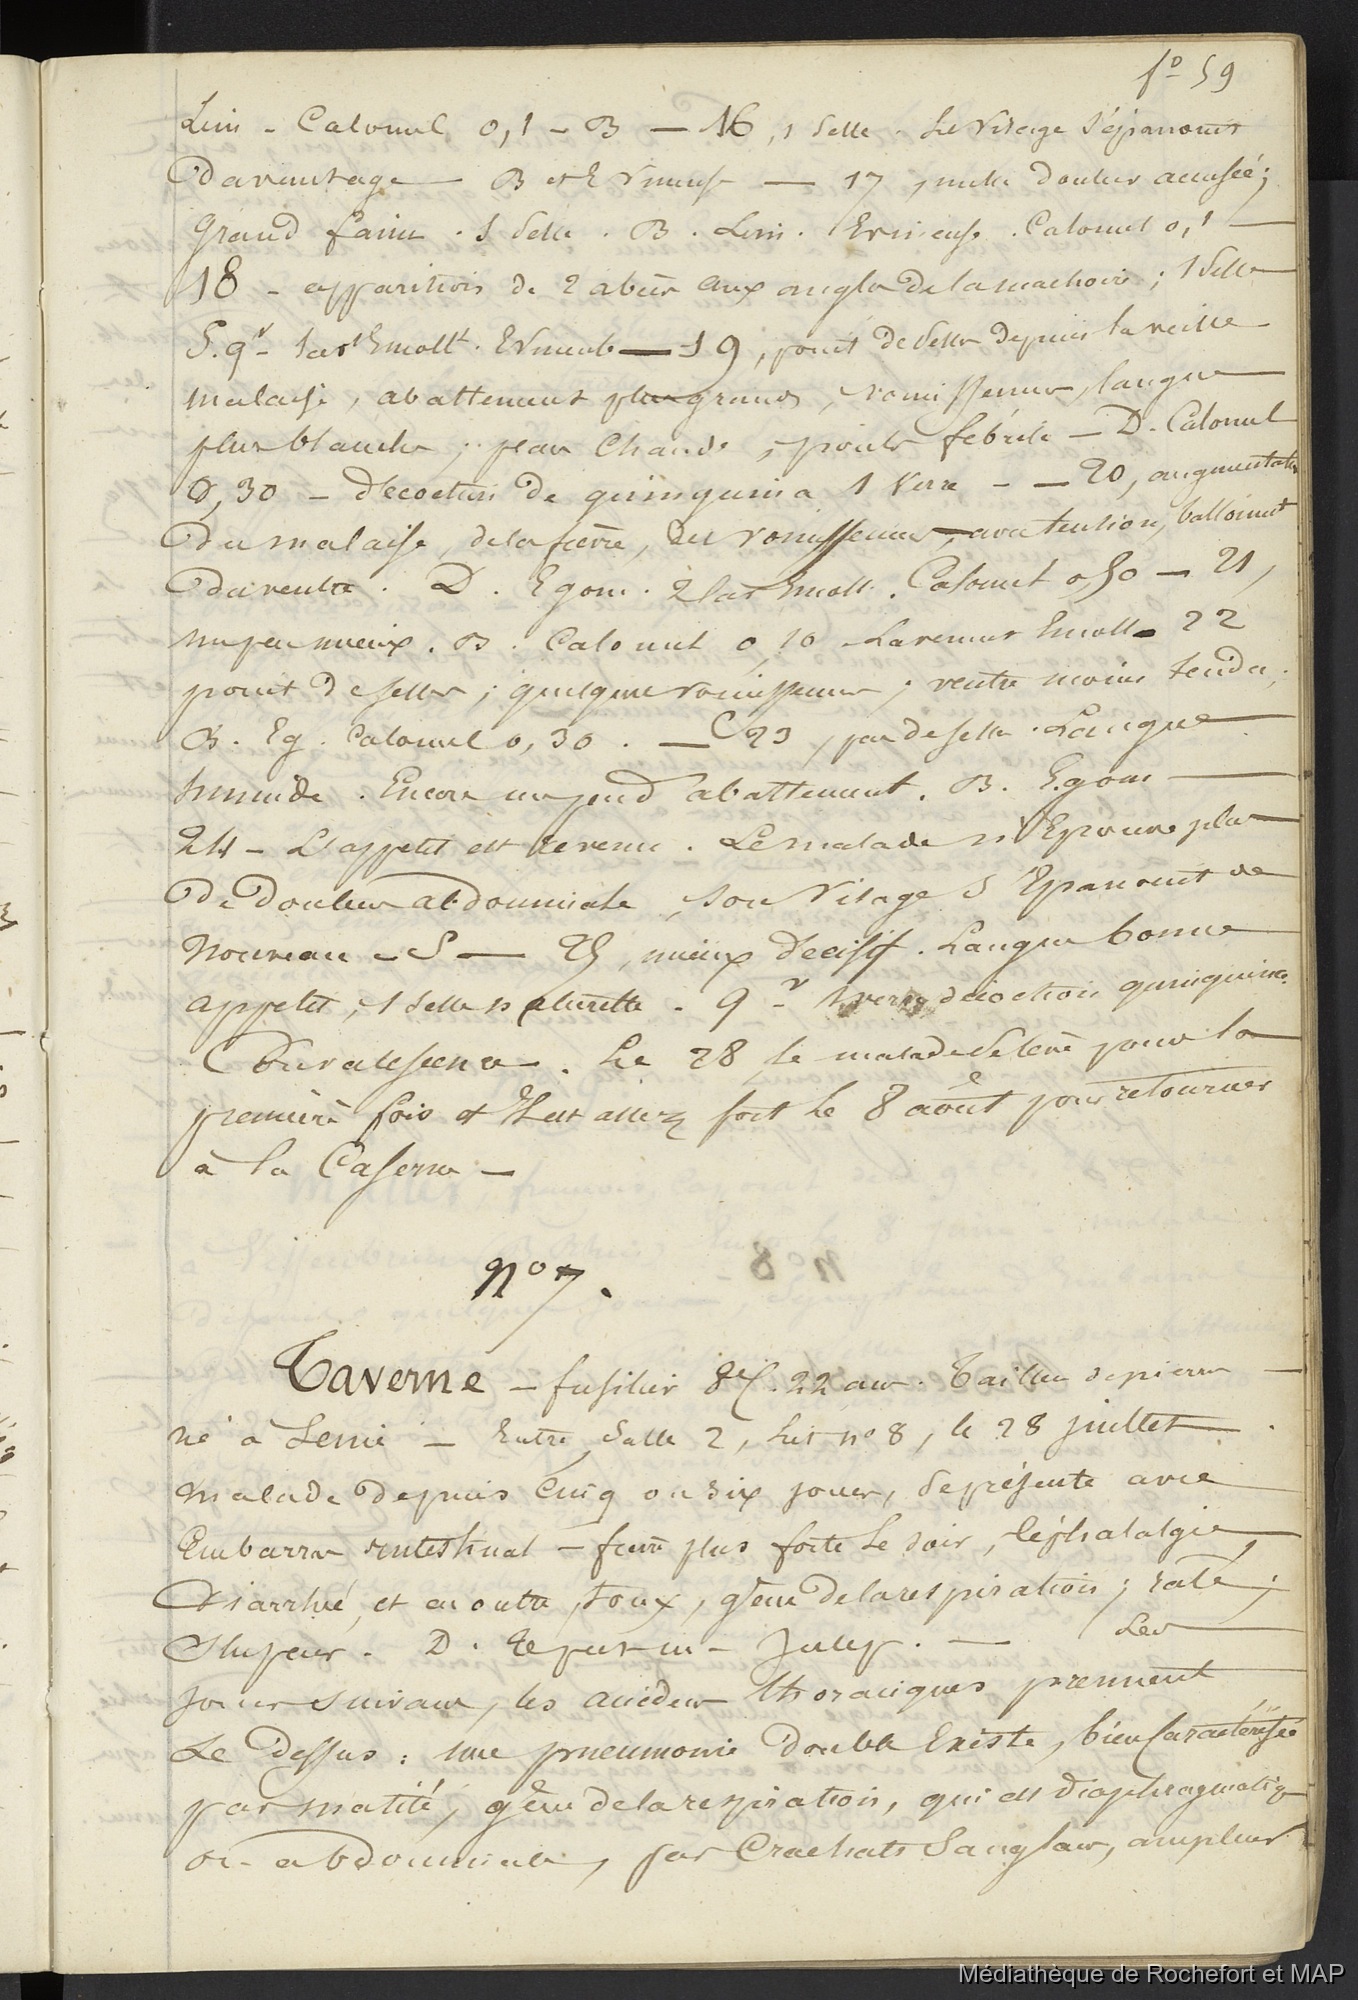 fo 59
Lin - Calomel 0,1 - B - 16, 1 selle. Le visage s'épanouit
davantage - B et - 17, nulle douleur accusée;
grand faim. 1 selle. B. Lin. Calomel 0,1 -
18 - apparition de 2 abcès aux angles de la machoire; 1 selle
S. qr - lavt Emollt. - 19, point de selles depuis la veille
malaise, abattement plus grands, vomissemens, langue
plus blanche; peau chaude, pouls fébrile - D. Calomel
0,30 - décoction de quinquina 1 verre - - 20, augmentation
du malaise, de la fièvre, des vomissemens, avec tension, ballonnt
du ventre. D. E gom. 2 lav Emoll. Calomel 0,50 - 21,
un peu mieux. B. Calomel 0,10 - Lavement Emoll - 22
point de selles; quelques vomissemens; ventre moins tendu;
B. Eg. Calomel 0,30. - 23, pas de selle. Langue
humide. Encore un peu d'abattement. B. E. gom -
24 - L'appetit est revenu. Le malade n'Eprouve plus
de douleur abdominale, son visage s'Epanouit de
nouveau - S - 25, mieux décisif. Langue bonne
appetit, 1 selle naturelle. qr - 1 verre décoction quinquina.
Convalescence. Le 28, le malade se lève pour la
première fois et Il est assez fort le 8 août pour retourner
à la Caserne -
no 7.
Taverne - fusilier 8e C. 22 ans. Tailleur de pierres -
né à - Entre, Salle 2, Lit no 8, le 28 juillet -
malade depuis cinq ou six jours, se présente avec
Embarras intestinal - fièvre plus forte le soir, Céphalalgie,
Diarrhée, et en outre, toux, gêne de la respiration; rale;
Stupeur. D. - Julep. - Les
jours suivans, les accidens thoraciques prennent
le dessus: une pneumonie double Existe, bien caractérisée
par matité, gêne de la respiration, qui est diaphragmatiq
ou abdominale, par Crachats Sanglans, ampleur
Médiathèque de Rochefort et MAP